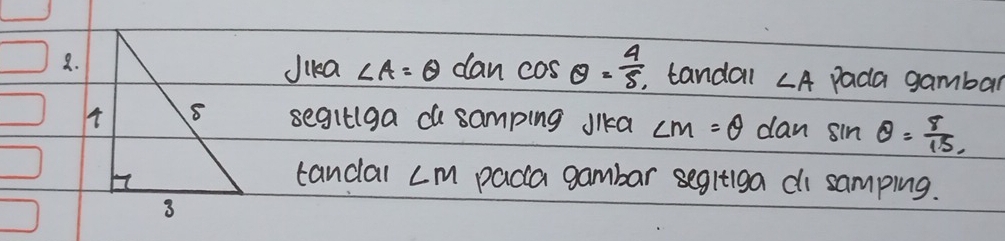 2.
Jika ∠A = θ dan cos θ = 4/5, tandai ∠A pada gambar
4
5
segitiga di samping Jika ∠M = θ dan sin θ = 8/15,
tandai ∠M pada gambar segitiga di samping.
3